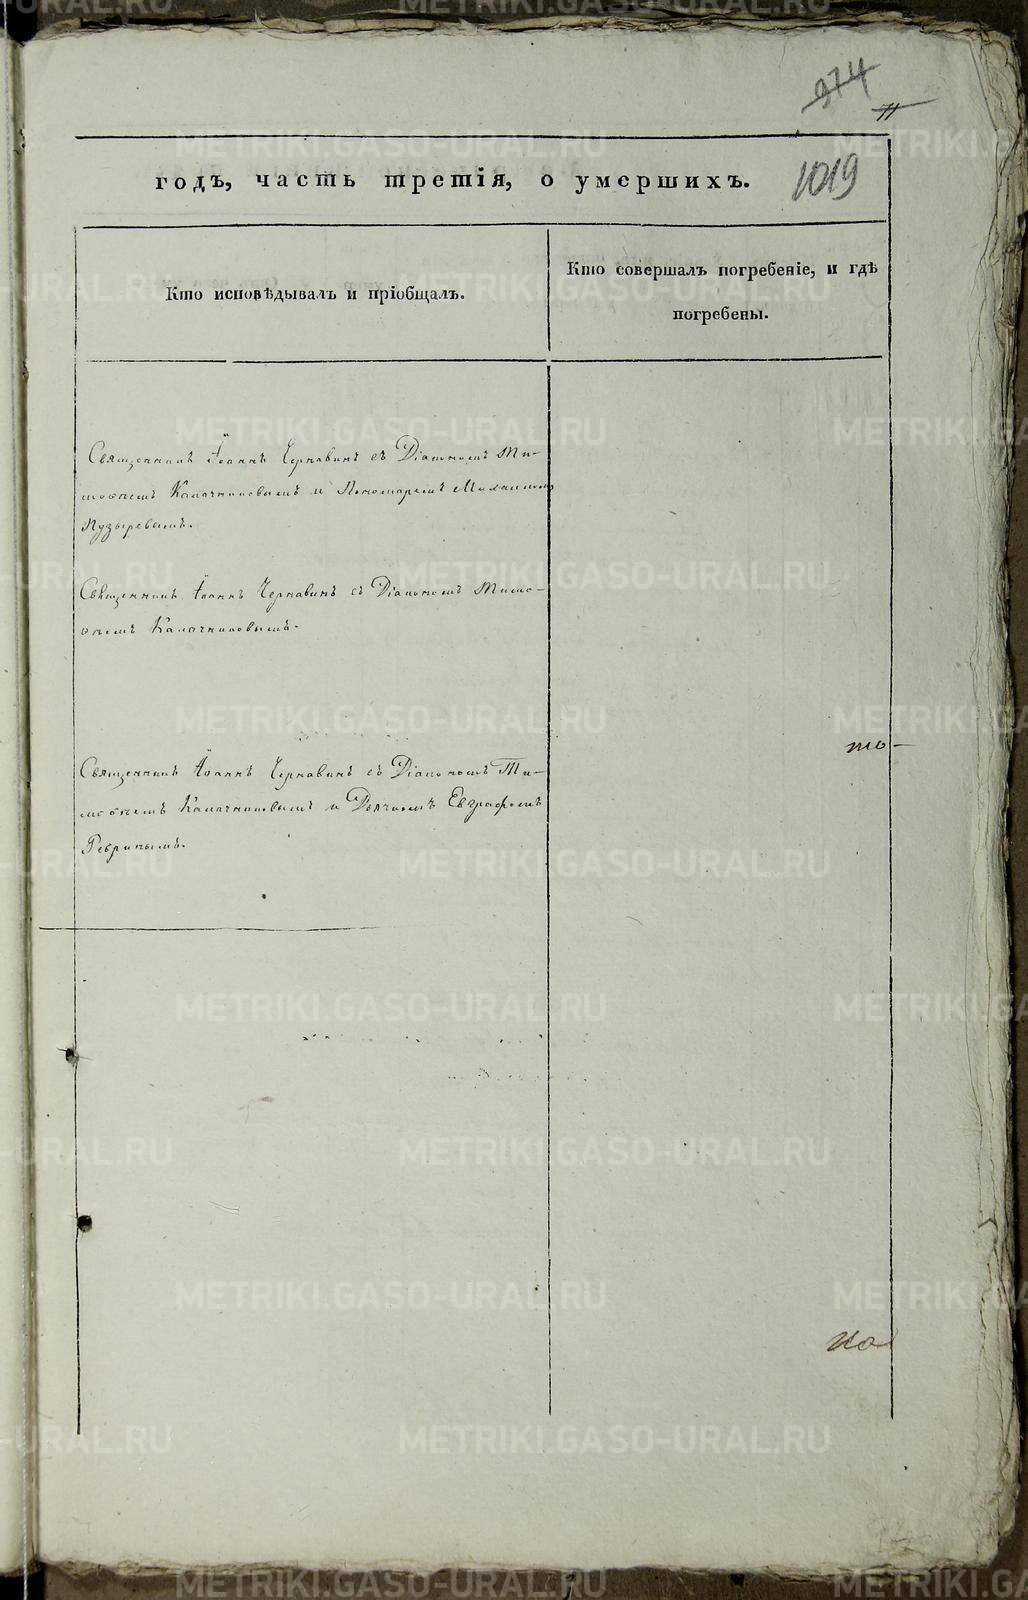 974
71
годъ, часть третія, о умершихъ.
1019
Кто исповѣдывалъ и пріобщалъ.
Кто совершалъ погребеніе, и гдѣ
погребены.
Священникъ Іоаннъ Чернавинъ съ Діакономъ Ти-
моѳеемъ Калачниковымъ и Пономаремъ Михаиломъ
Пузыревымъ.
Священникъ Іоаннъ Чернавинъ съ Діакономъ Тимо-
ѳеемъ Калачниковымъ.
то-
Священникъ Іоаннъ Чернавинъ съ Діакономъ Ти-
моѳеемъ Калачниковымъ и Дьячкомъ Евграфомъ
Ребринымъ.
METRIKI.GASO-URAL.RU